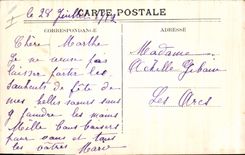 le 28 Juillet
CARTE POSTALE
CORRESPONDANCE
ADRESSE
Chère Marthe
Je ne veux pas
laisser partir les
souhaits de fête de
mes belles soeurs sans
y joindre les miens
Mille bons baisers
pour vous et tous
les vôtres Marie
Madame
Achille
Les Arcs